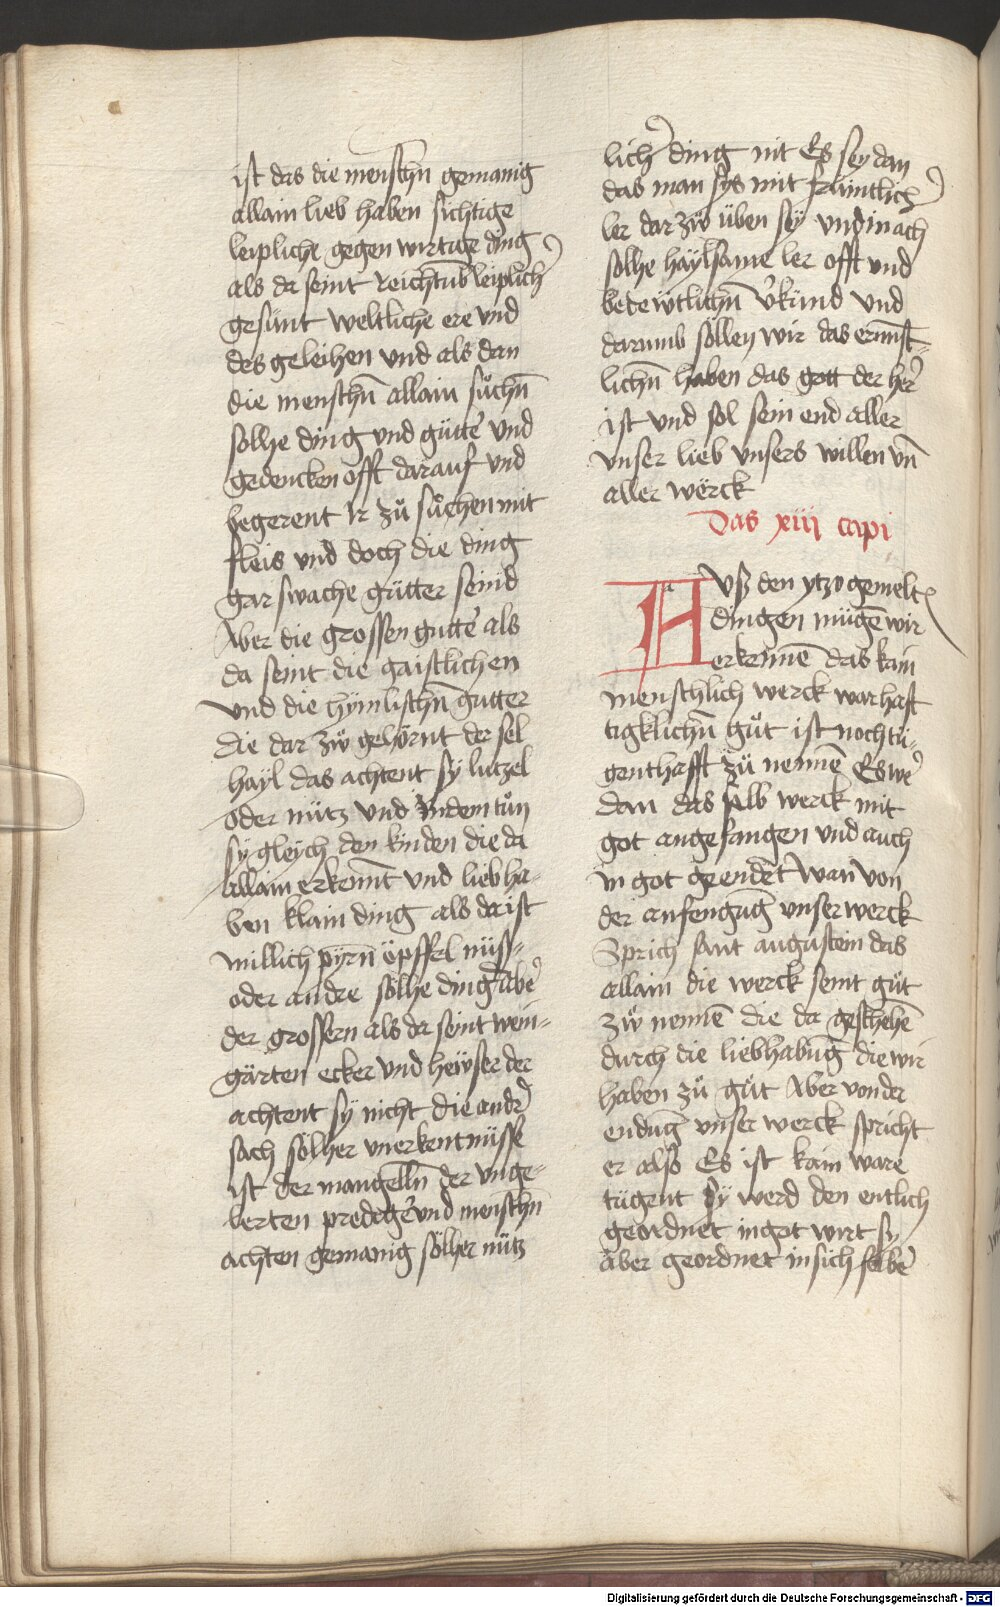 ist das die menschn̄ gemanig
allain lieb haben sichtige
leipliche gegen wirtige ding
als da seint reichtūb leiplicħ
gesunt weltliche ere vnd
des geleihen vnd als dan
die menschn̄ allain sůchn̄
solhe ding vnd gütte᷑ vnd
gedencken offt darauf vnd
begerent Ir zů sůchen mit
fleis vnd doch die ding
gar swache gütter seind
Aber die grossen gutte᷑ als
da seint die gaistlichen
vnd die hymlischn̄ gutter
die dar zw̋ gehörnt der sel
hayl das achtent sy lutzel
oder nütz vnd Indem tůn
sy gleych den kinden die da
allain erkennt vnd lieb ha-
ben klain ding als da ist
millich pyrn̄ öpffel nüss-
oder andre sölhe ding Abe᷑
der grossern als da seint wein-
gärten ecker vnd heẅser der
achtent sy nicht die andr᷑
sach sölher vnerkentnüsse
ist der mangelln̄ der vnge-
lerten predige᷑ vnd menschn̄
achten gemanig sölher nütz
licħ ding nit Es sey dan
das man sys mit fraintlicħ
ler dar zw̋ üben sÿ vnd in ach
solhe haylsame ler offt vnd
bedewtlichn̄ v᷑künd vnd
darumb söllen wir das ernnst-
lichn̄ haben das gott der her᷑
ist vnd sol sein end aller
vnser lieb vnsers willen vn̄
aller wörck
Das xiii capi
AVsz den ytzo gemelt̄
dingen mügē wir
erkennē das kain
menschlich werck warhaff
tigklichn̄ gůt ist noch tu-
genthafft zů nennē Es we᷑
dan das selb werck mit
got angefangen vnd auch
in got geendet Wan von
der anfengūg vnser werck
Sprich sant augustein das
allain die werck seint gůt
zw̋ nennē die da geschehē
durch die liebhabūg die wir
haben zů gůt Aber von der
endūg vnser werck spricht
er also Es ist kain ware
tugent Sÿ werd den entlich
geordnet in got wirt sy
aber geordnet in sich selbe᷑
Digitalisierung gefördert durch die Deutsche Forschungsgemeinschaft - DFG